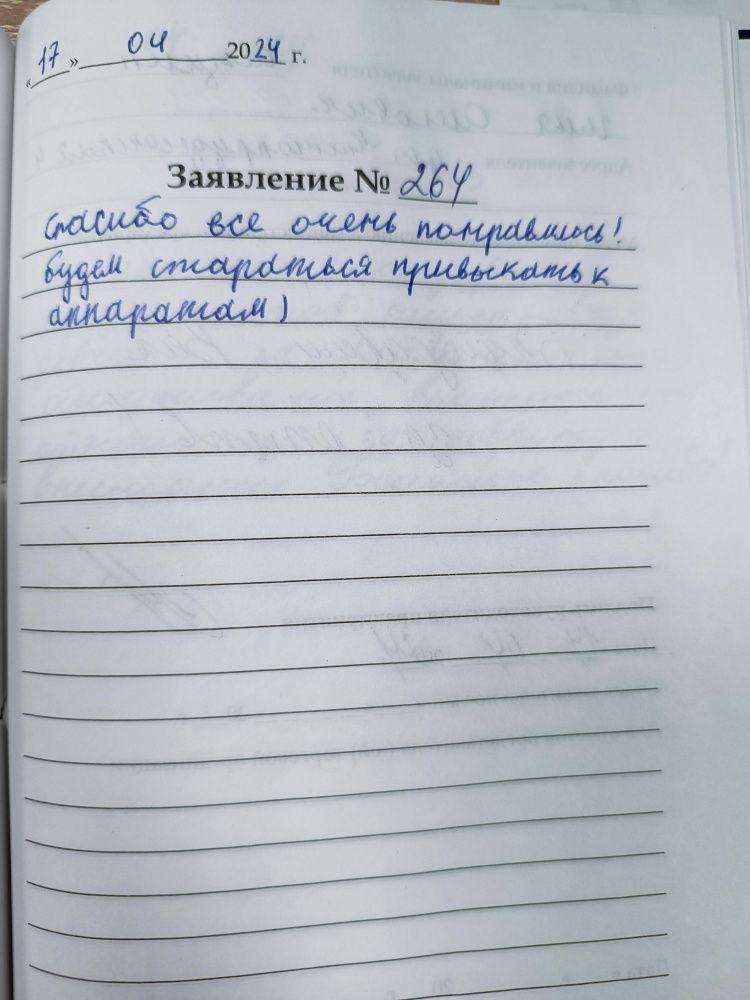 «17» 04 2024 г.
Заявление № 264
спасибо все очень понравилось!
будем стараться привыкать к
аппаратам)